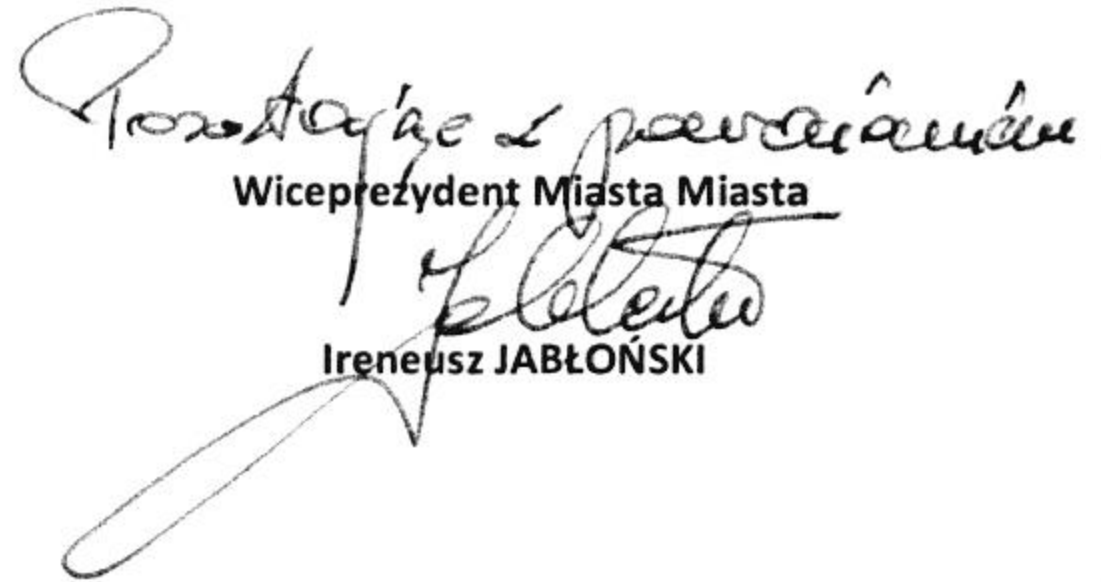 Pozostając z poważaniem
Wiceprezydent Miasta Miasta
Ireneusz JABŁOŃSKI